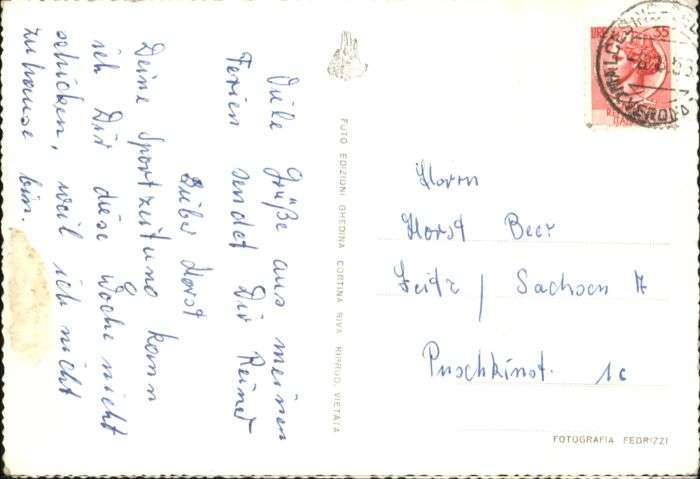 Viele Grüße aus meinen
Ferien sendet Dir Reiner
Lieber Horst
Deine Sportzeitung kann
ich Dir diese Woche nicht
schicken, weil ich nicht
zuhause bin.
FOTO EDIZIONI GHEDINA CORTINA RIVA RIPROD. VIETATA
LIRE 35
ITALIA
VERONA
Herrn
Horst Beer
Zeitz / Sachsen A
Puschkinst. 1c
FOTOGRAFIA FEDRIZZI